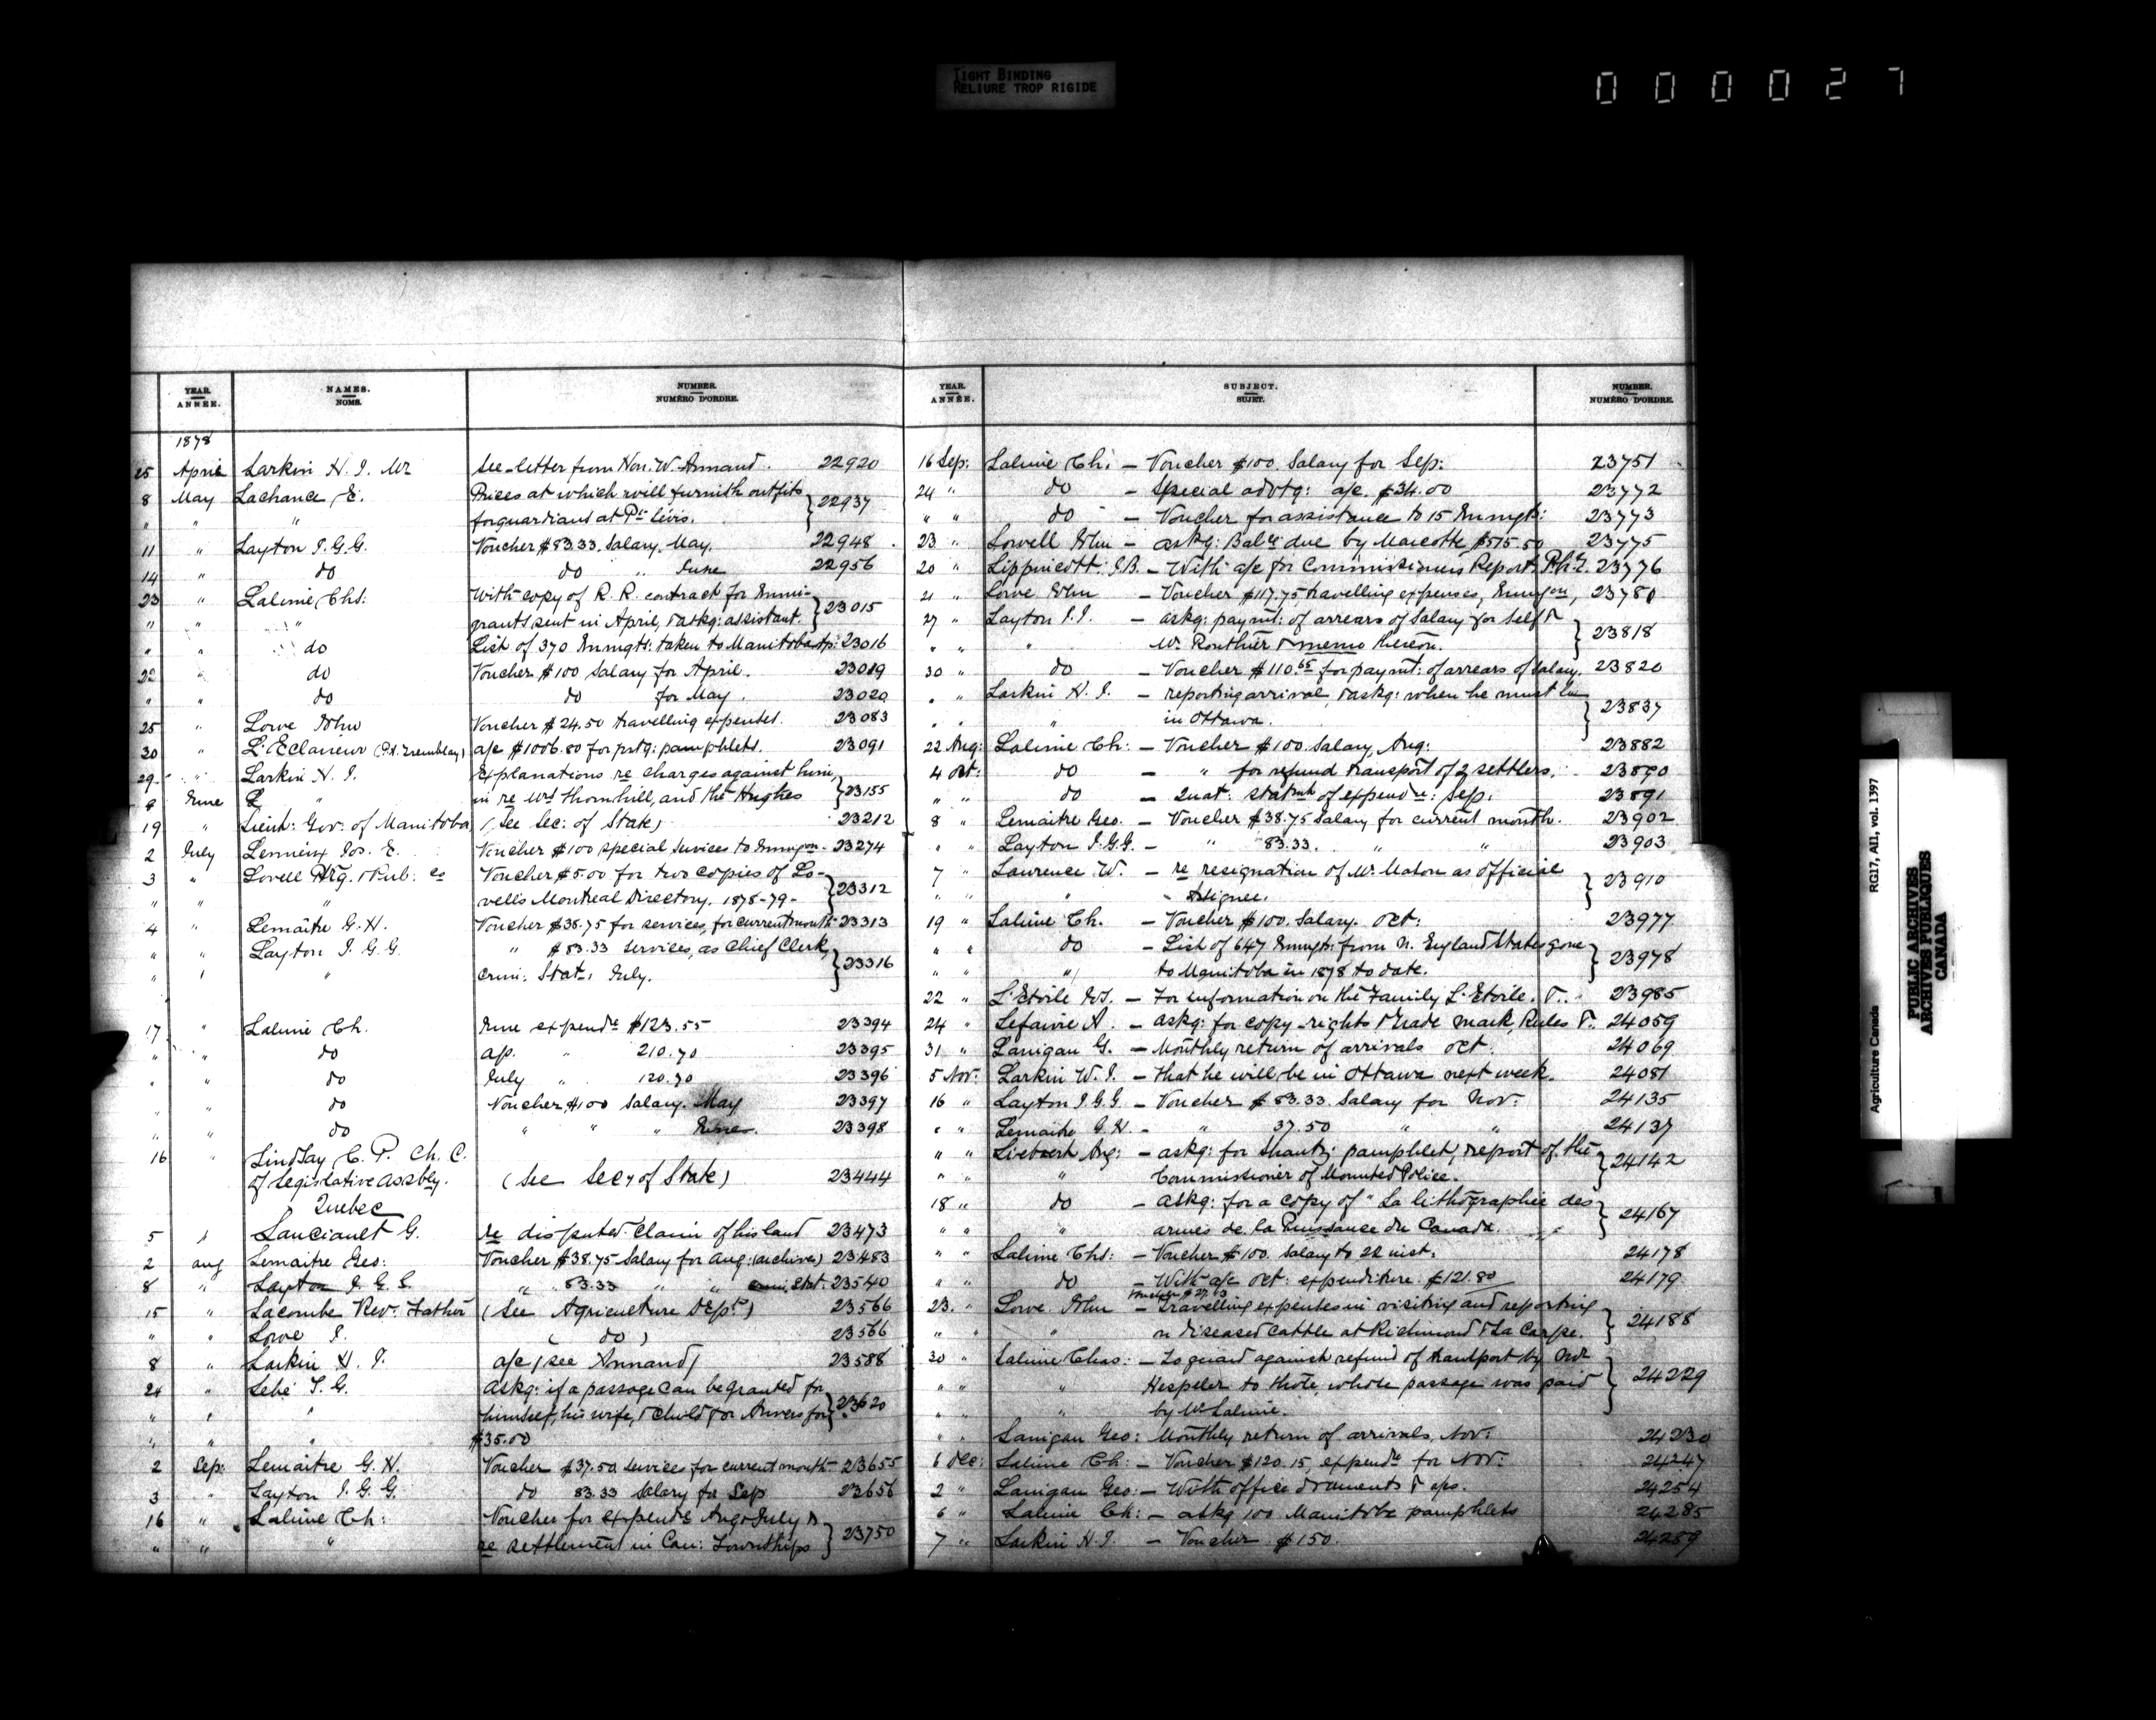 TIGHT BINDING
RELIURE TROP RIGIDE
000027
YEAR. ANNÉE. NAMES. NOMS. NUMBER. NUMÉRO D'ORDRE.
1878
25 April Larkin H. J. Mr See letter from Hon. W. Annand. 22920
8 May Lachance E. Prices at which will furnish outfits
" " " for guardians at Pt Lévis. } 22937
11 " Layton J.G.G. Voucher $83.33. Salary. May. 22948
14 " do do " June 22956
23 " Lalime Chs: With copy of R. R. contract for Immi-
" " " grants sent in April, & askg: assistant. } 23015
" " do List of 370 Immgts: taken to Manitoba Ap: 23016
22 " do Voucher $100 Salary for April. 23019
" " do do for May. 23020
25 " Lowe John Voucher $24.50 travelling expenses. 23083
30 " L'Eclaireur (P.A. Tremblay) a/c $1006.80 for prtg: pamphlets. 23091
29 " Larkin H. J. Explanations re charges against him,
9 June " in re Mrs Thornhill, and the Hughes } 23155
19 " Lieut: Gov: of Manitoba (See Sec: of State) 23212
2 July Lemieux Jos. E. Voucher $100 special services to Immgon - 23274
3 " Lovell Prtg. & Pub: Co Voucher $5.00 for two copies of Lo-
" " " vell's Montreal Directory. 1878-79- } 23312
4 " Lemaitre G. H. Voucher $38.75 for services, for current month 23313
" " Layton J. G. G. " $83.33 services, as Chief Clerk,
" " " Crim: Stats: July. } 23316
17 " Lalime Ch. June expendre $123.55 23394
" " do Ap. " 210.70 23395
" " do July " 120.70 23396
" " do Voucher $100 Salary. May 23397
" " do " " " June. 23398
16 " Lindsay C. P. Ch. C.
of Legislative Assbly. (See Secy of State) 23444
Quebec
5 " Lanciault G. re disputed claim of his land 23473
2 Aug Lemaitre Geo: Voucher $38.75 Salary for Aug: (archives) 23483
8 " Layton J. G. G. " 83.33 " " Crim. Stat: 23540
15 " Lacombe Rev. Father (See Agriculture Dept.) 23566
" " Lowe J. ( do ) 23566
8 " Larkin H. J. a/c (see Annand) 23588
24 " S. G. Askg: if a passage can be granted for
" " " himself, his wife, & child for Anvers for } 23620
" " " $35.00
2 Sep: Lemaitre G. H. Voucher $37.50 services for current month 23655
3 " Layton J. G. G. do 83.33 Salary for Sep 23656
16 " Lalime Ch: Voucher for expendre Aug & July &
" " " re settlement in Can: Townships } 23750
YEAR. ANNÉE. SUBJECT. SUJET. NUMBER. NUMÉRO D'ORDRE.
16 Sep: Lalime Ch. - Voucher $100. Salary for Sep: 23751
24 " do - Special advtg: a/c. $34.00 23772
" " do - Voucher for assistance to 15 Immgts: 23773
23 " Lovell John - askg: Balce due by Marcotte $575.50 23775
20 " Lippincott. J.B. - With a/c for Commissioners Report. Pha. 23776
21 " Lowe John - Voucher $117.75, travelling expenses, Immgon, 23780
27 " Layton J.J. - askg: paymt: of arrears of Salary for self &
" " " Mr. Routhier & memo thereon. } 23818
30 " do - Voucher $110.65 for paymt: of arrears of Salary. 23820
" " Larkin H. J. - reporting arrival, & askg: when he must be
" " " in Ottawa. } 23837
22 Aug: Lalime Ch: - Voucher $100. Salary, Aug: 23882
4 Oct: do - " for refund transport of 2 settlers. 23890
" " do - Quat: statmt of expendre: Sep: 23891
8 " Lemaitre Geo. - Voucher $38.75 Salary for current month. 23902
" " Layton J.G.G. - " 83.33. " " 23903
7 " Lawrence W. - re resignation of Mr Maton as Official
" " " - Assignee. } 23910
19 " Lalime Ch. - Voucher $100. Salary. Oct: 23977
" " do - List of 647 Immgts: from N. England States gone
" " " to Manitoba in 1878 to date. } 23978
22 " L'Etoile - For information on the Family L'Etoile. &.. 23985
24 " Lefaivre A. - askg: for copy-rights & trade mark, Rules &.. 24059
31 " Lanigan G. - Monthly return of arrivals Oct: 24069
5 Nov: Larkin W. J. - that he will be in Ottawa next week. 24081
16 " Layton J.G.G. - Voucher $83.33. Salary for Nov: 24135
" " Lemaitre G.H. - " 37.50 " " 24137
" " Liebsert Aug: - askg: for Shantz: pamphlet, report of the
" " " Commissioner of Mounted Police. } 24142
18 " do - askg: for a copy of "La lithographie des
" " " armes de la Puissance du Canada. } 24167
" " Lalime Chs: - Voucher $100. Salary to 22 inst: 24178
" " do - With a/c Oct: expenditure. $121.80 24179
Voucher $27.63
23. " Lowe John - Travelling expenses in visiting and reporting
" " " on diseased cattle at Richmond & La Carpe. } 24188
30 " Lalime Chas: - To guard against refund of transport by Mr
" " " Hespeler to those, whose passage was paid } 24229
" " " by Mr Lalime.
" " Lanigan Geo: Monthly return of arrivals, Nov: 24230
6 Dec: Lalime Ch: - Voucher $120.15, expendre for Nov: 24247
2 " Lanigan Geo: - With office &c. 24254
6 " Lalime Ch: - askg 100 Manitoba pamphlets 24285
7 " Larkin H. J. - Voucher $150. 24289
Agriculture Canada RG17, AII, vol. 1397
PUBLIC ARCHIVES
ARCHIVES PUBLIQUES
CANADA